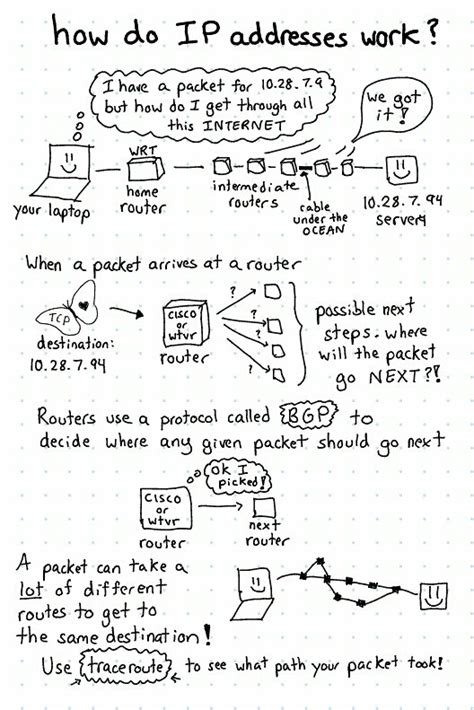 how do IP addresses work?
I have a packet for 10.28.7.9
but how do I get through all
this INTERNET
we got
it!
WRT
your laptop
home
router
intermediate
routers
cable
under the
OCEAN
10.28.7.94
server
When a packet arrives at a router
TCP
destination:
10.28.7.94
CISCO
or
wtvr
router
?
?
?
?
possible next
steps. where
will the packet
go NEXT?!
Routers use a protocol called {BGP} to
decide where any given packet should go next
OK I
picked!
CISCO
or
wtvr
router
next
router
A packet can take a
lot of different
routes to get to
the same destination!
Use {traceroute} to see what path your packet took!